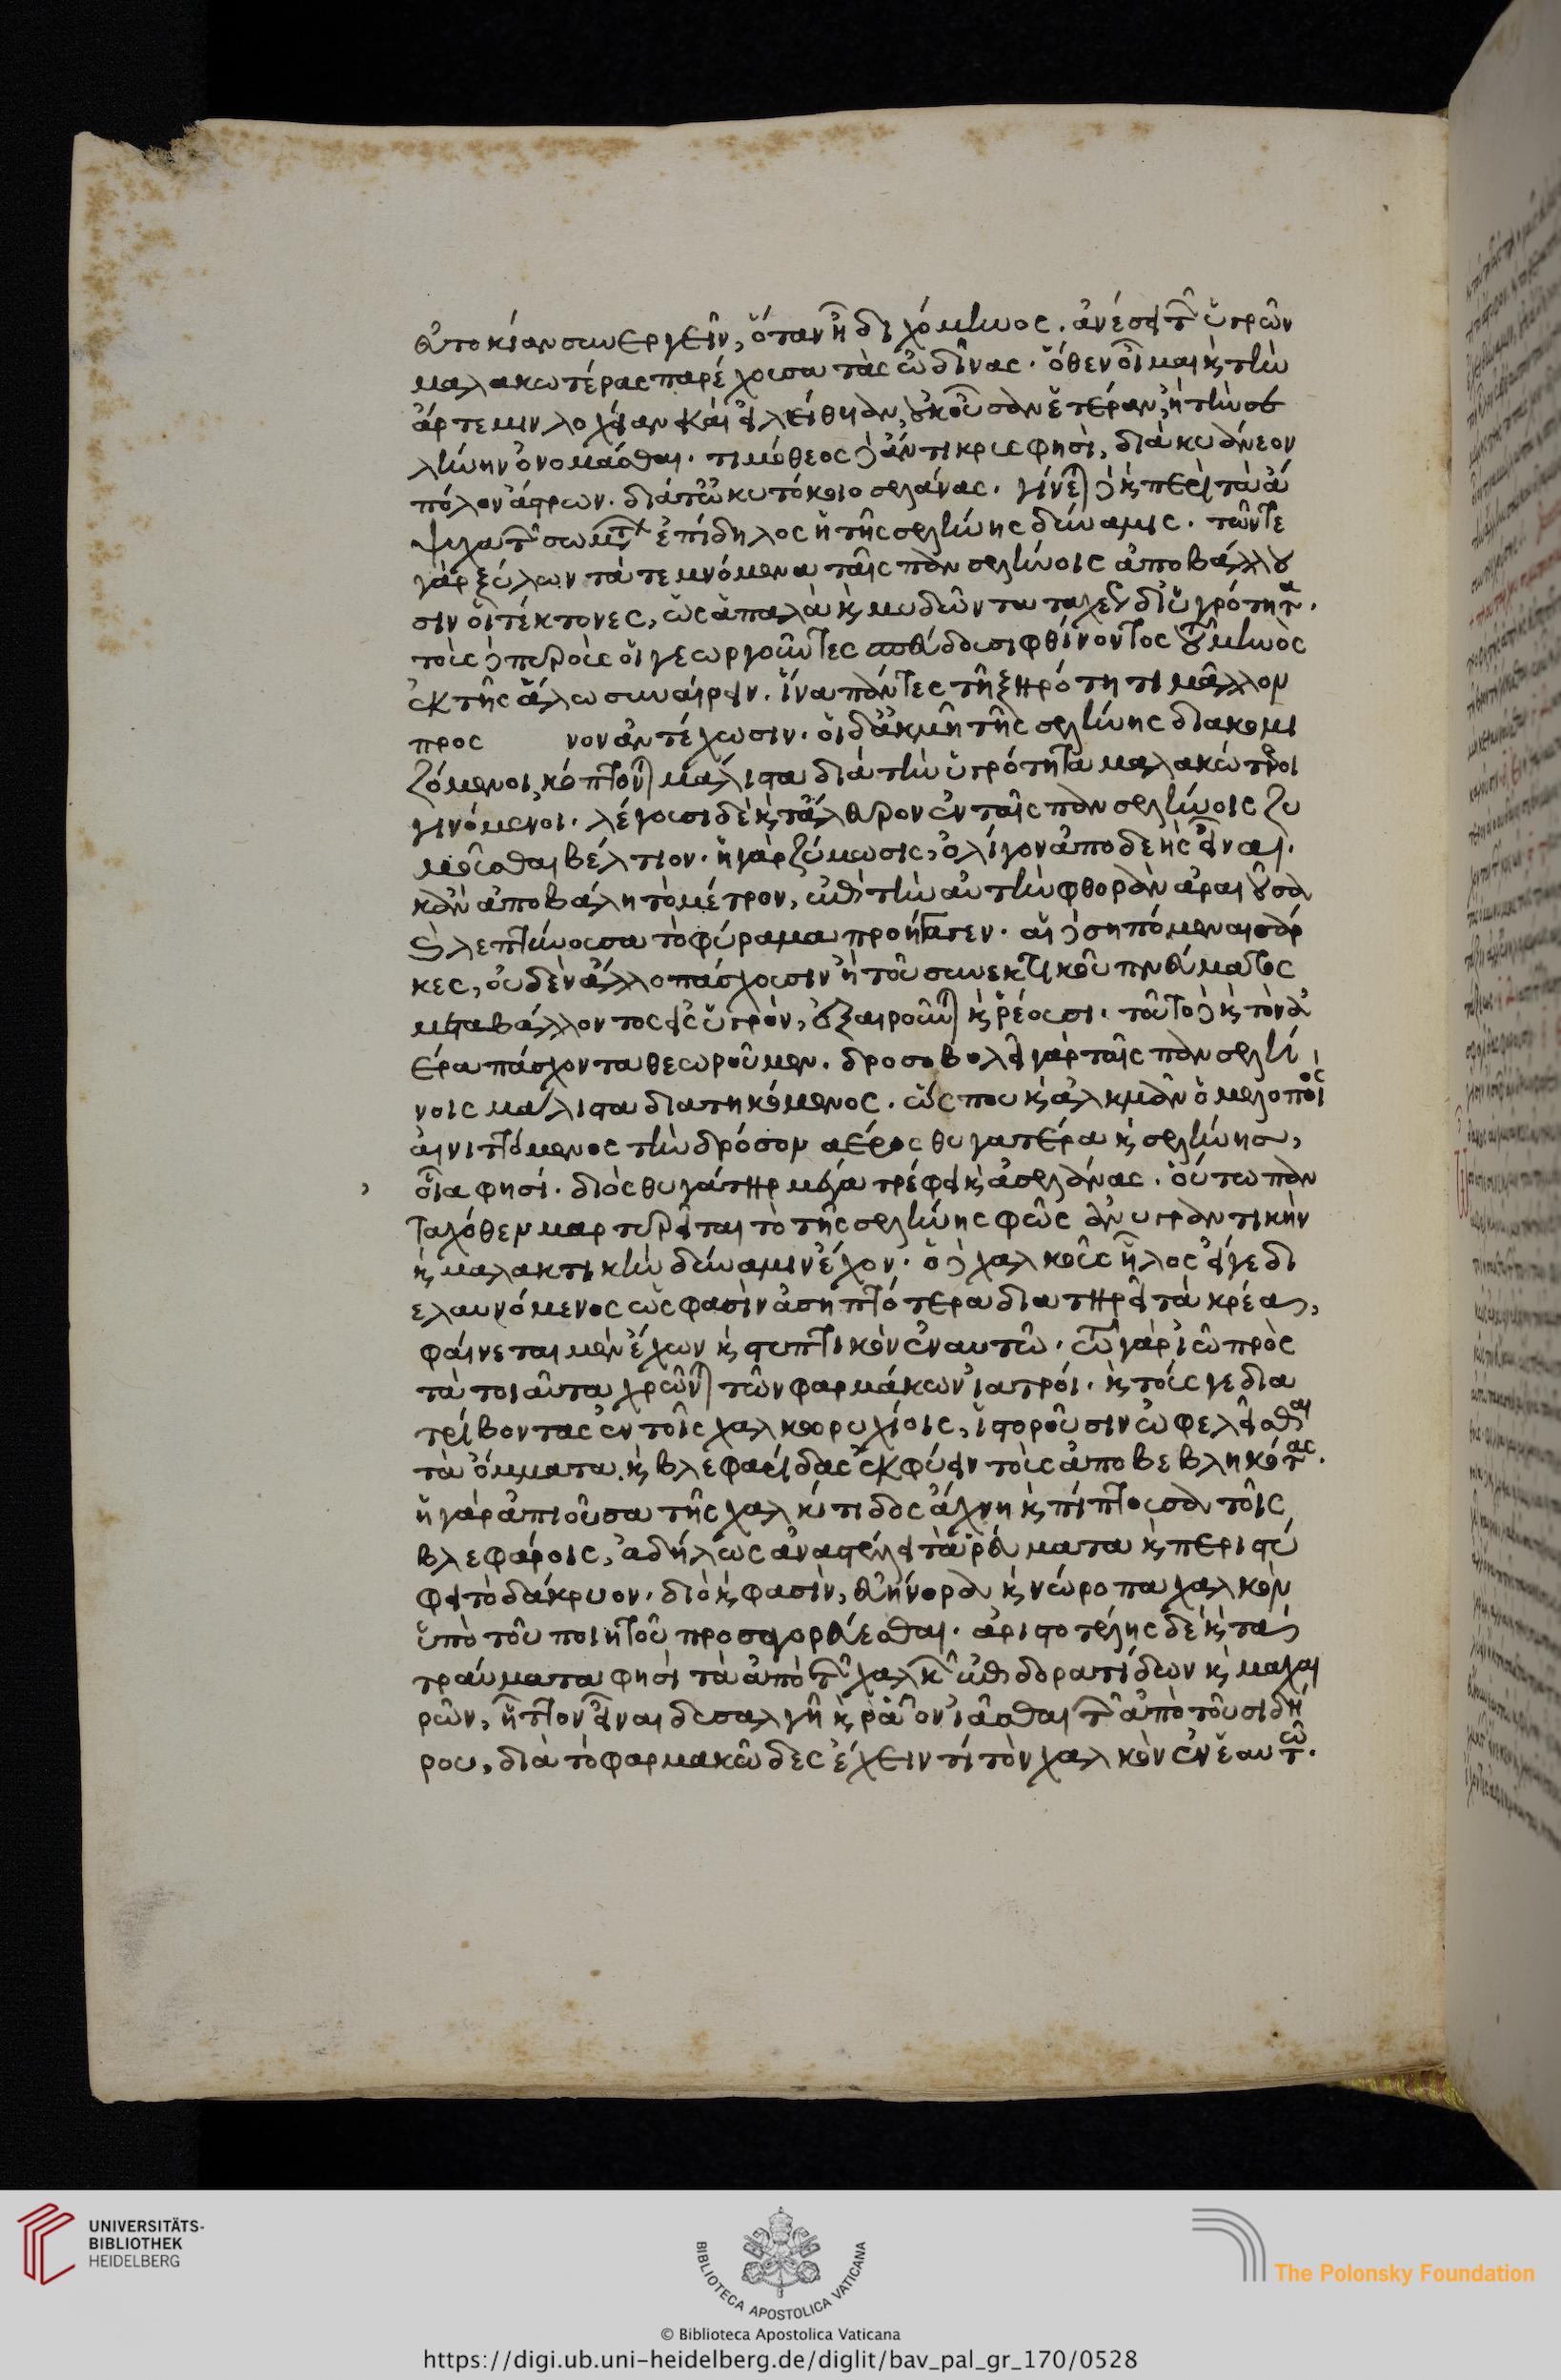 εὐτοκίαν συνεργεῖν, ὅταν ἦ διχόμηνος. ἀνέσει τῶν ὑγρῶν
μαλακωτέρας παρέχουσα τὰς ὠδῖνας. ὅθεν οἶμαι καὶ τὴν
ἄρτεμιν λοχείαν καὶ εἰλείθυιαν, οὐκ οὖσαν ἑτέραν, ἢ τὴν σε
λήνην ὀνομάσθαι. τιμόθεος δ' ἄντικρυς φησὶ, διὰ κυάνεον
πόλον ἄστρων. διά τ' ὠκυτόκοιο σελάνας. γίνεται δὲ καὶ περὶ τὰ ἄ
ψυχα τῶν σωμάτων ἐπίδηλος ἡ τῆς σελήνης δύναμις. τῶν τε
γὰρ ξύλων τὰ τεμνόμενα ταῖς πανσελήνοις ἀποβάλλου
σιν οἱ τέκτονες, ὡς ἁπαλὰ καὶ μυδῶντα ταχέως δι' ὑγρότητα.
τοὺς δὲ πυροὺς οἱ γεωργοῦντες σπεύδουσι φθίνοντος τοῦ μηνὸς
ἐκ τῆς ἅλω συναίρειν. ἵνα πάντες τῆ ξηρότητι μᾶλλον
προς νον ἀντέχωσιν. οἱ δ' ἀκμῆ τῆς σελήνης διακομι
ζόμενοι, κόπτονται μάλιστα διὰ τὴν ὑγρότητα μαλακώτεροι
γινόμενοι. λέγουσι δὲ καὶ τἄλευρον ἐν ταῖς πανσελήνοις ζυ
μοῦσθαι βέλτιον. ἡ γὰρ ζύμωσις, ὀλίγον ἀποδεῖ σῆψις εἶναι.
κἂν ἀποβάλη τὸ μέτρον, ἐπὶ τὴν αὐτὴν φθορὰν ἀραιοῦσα
καὶ λεπτύνουσα τὸ φύραμα προήγαγεν. αἱ δὲ σηπόμεναι σάρ
κες, οὐδὲν ἄλλο πάσχουσιν ἢ τοῦ συνεκτικοῦ πνεύματος
μεταβάλλοντος εἰς ὑγρὸν, ἐξαιροῦνται καὶ ῥέουσι. τοῦτο δὲ καὶ τὸν ἀ
έρα πάσχοντα θεωροῦμεν. δροσοβολεῖ γὰρ ταῖς πανσελή
νοις μάλιστα διατηκόμενος. ὥς που καὶ ἀλκμὰν ὁ μελοποιὸς
αἰνιττόμενος τὴν δρόσον ἀέρος θυγατέρα καὶ σελήνης,
οἷα φησί. διὸς θυγάτηρ μέγα τρέφει καὶ ἀσελάνας. οὕτω παν
ταχόθεν μαρτυρεῖται τὸ τῆς σελήνης φῶς ἀνυγραντικὴν
καὶ μαλακτικὴν δύναμιν ἔχον. ὁ δὲ χαλκοῦς ἧλος εἴγε δι
ελαυνόμενος ὥς φασὶν ἀσηπτότερα διατηρεῖ τὰ κρέα,
φαίνεται μὲν ἔχων καὶ στυπτικὸν ἐν αυτῶ. τῶ γὰρ ἰῶ πρὸς
τὰ τοιαῦτα χρῶνται τῶν φαρμάκων ἰατροί. καὶ τούς γε δια
τρίβοντας ἐν τοῖς χαλκορυχίοις, ἱστοροῦσιν ὠφελεῖσθαι
τὰ ὄμματα. καὶ βλεφαρίδας ἐκφύειν τοὺς ἀποβεβληκότας.
ἡ γὰρ ἀπιοῦσα τῆς χαλκίτιδος ἄχνη καὶ πίπτουσα τοῖς
βλεφάροις, ἀδήλως ἀναστέλλει τὰ ῥεύματα καὶ περιστύ
φει τὸ δάκρυον. διὸ καὶ φασὶν, εὐήνορα καὶ νώροπα χαλκὸν
ὑπὸ τοῦ ποιητοῦ προσαγορεύεσθαι. ἀριστοτέλης δὲ καὶ τὰ
τραύματα φησὶ τὰ ἀπὸ τῶν χαλκῶν ἐπιδορατίδων καὶ μαχαι
ρῶν, ἧττον εἶναι δυσαλγῆ καὶ ῥᾶον ἰᾶσθαι τῶν ἀπὸ τοῦ σιδή
ρου, διὰ τὸ φαρμακῶδες ἔχειν τί τὸν χαλκὸν ἐν ἑαυτῶ.
UNIVERSITÄTS-
BIBLIOTHEK
HEIDELBERG
BIBLIOTECA APOSTOLICA VATICANA
The Polonsky Foundation
© Biblioteca Apostolica Vaticana
https://digi.ub.uni-heidelberg.de/diglit/bav_pal_gr_170/0528